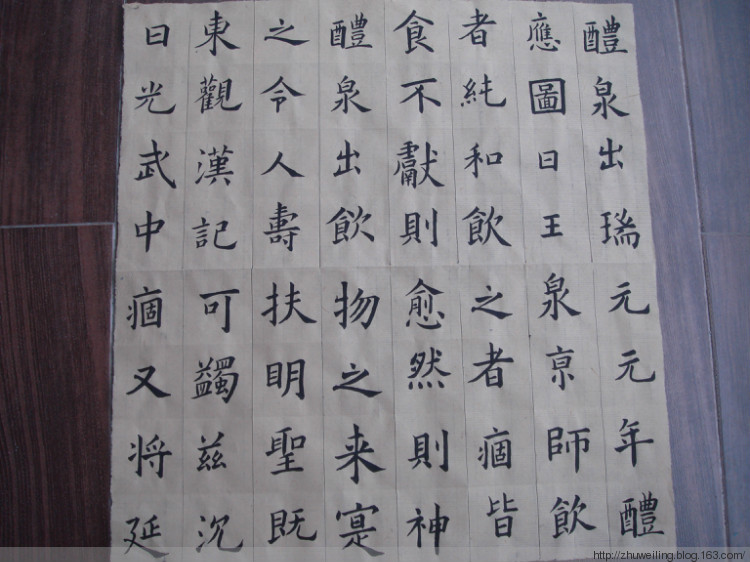 醴泉出瑞元元年醴
應圖曰王泉京師飲
者純和飲之者痼皆
食不獻則愈然則神
醴泉出飲物之来寔
之令人壽扶明聖既
東觀漢記可蠲兹沉
曰光武中痼又将延
http://zhuweiling.blog.163.com/